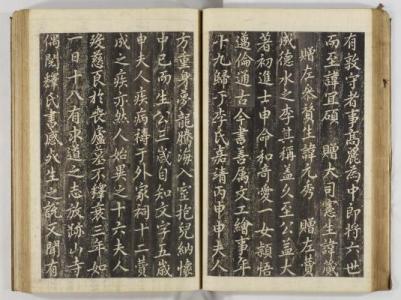 有敦守者事高麗為中郎將六世
而至諱宜碩贈大司憲生諱蕆
贈左參贊生諱元秀贈左贊
成德水之李其稱盖久至公益大
著初進士申命和奇愛一女穎悟
邁倫通古今書善属文工繪事年
十九歸于李氏嘉靖丙申申夫人
方重身夢龍騰海入室抱兒納懷
中已而生公三歲自知文字五歲
申夫人疾病禱于外家祠十二贊
成之疾亦然人始異之十六夫人
歿慈良於喪廬墓不釋衰三年如
一日十八有求道之志放跡山寺
偶閱釋氏書感死生之說又聞有